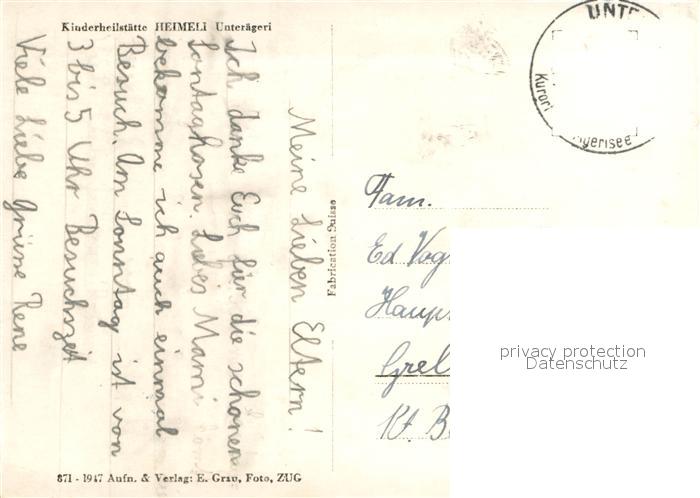 Kinderheilstätte HEIMELI Unterägeri
Meine Lieben Eltern!
Ich danke Euch für die schonen
Sontaghosen. Liebes Mami
bekomme ich auch einmal
Besuch. Am Sonntag ist von
3 bis 5 Uhr Besuchszeit
Viele Liebe Grüne Rene
871 - 1947 Aufn. & Verlag: E. Grau, Foto, ZUG
Fabrication Suisse
UNT
Kurort
gerisee
Fam.
Ed Vog
Haup
Grel
Kt. B
privacy protection
Datenschutz